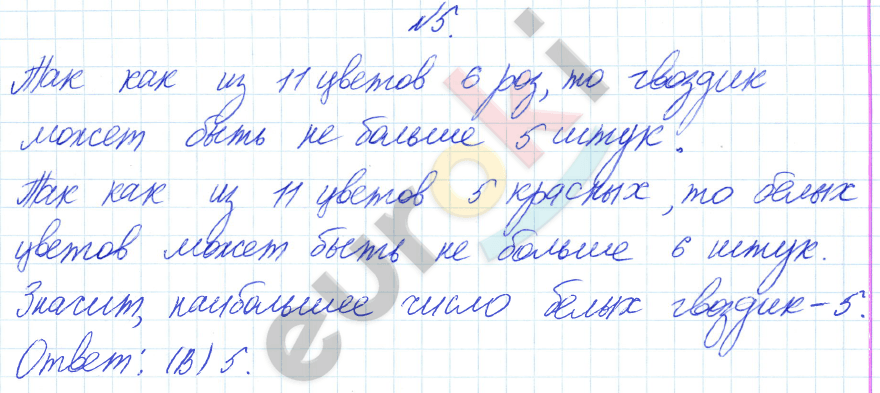 №5.
Так как из 11 цветов 6 роз, то гвоздик
может быть не больше 5 штук.
Так как из 11 цветов 5 красных, то белых
цветов может быть не больше 6 штук.
Значит, наибольшее число белых гвоздик – 5.
Ответ: (В) 5.
euroki